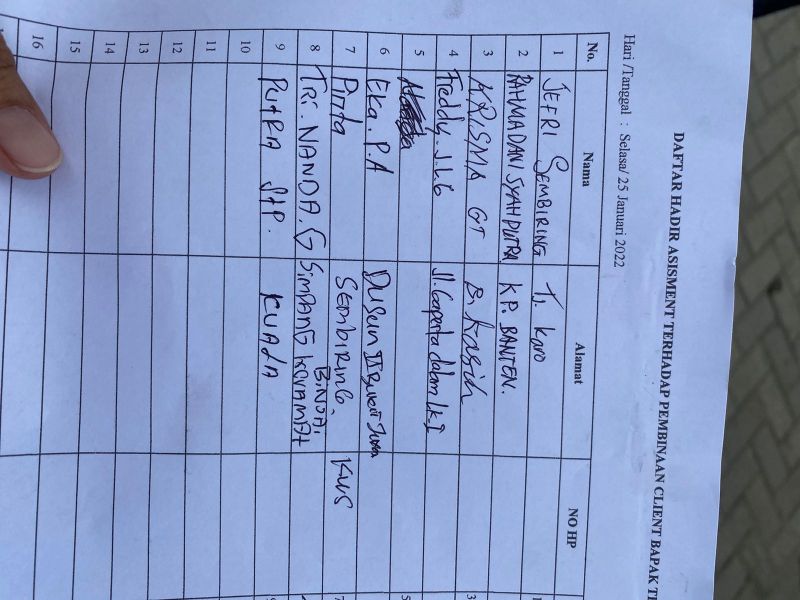 DAFTAR HADIR ASISMENT TERHADAP PEMBINAAN CLIENT BAPAK
Hari /Tanggal : Selasa/ 25 Januari 2022
No. Nama Alamat NO HP
1 JEFRI SEMBIRING Tj. Karo
2 RAHMADANI SYAHPUTRA KP. BANTEN.
3 KRISMA GT B. Kasih
4 Freddy. J. Jl. Gaperta dalam
5
6 Eka. P.A Dusun II
7 Pinta SEMBIRING. KWS
8 TRI. NANDA. G SIMPANG BINJAI
9 PUTRA KUALA
10
11
12
13
14
15
16